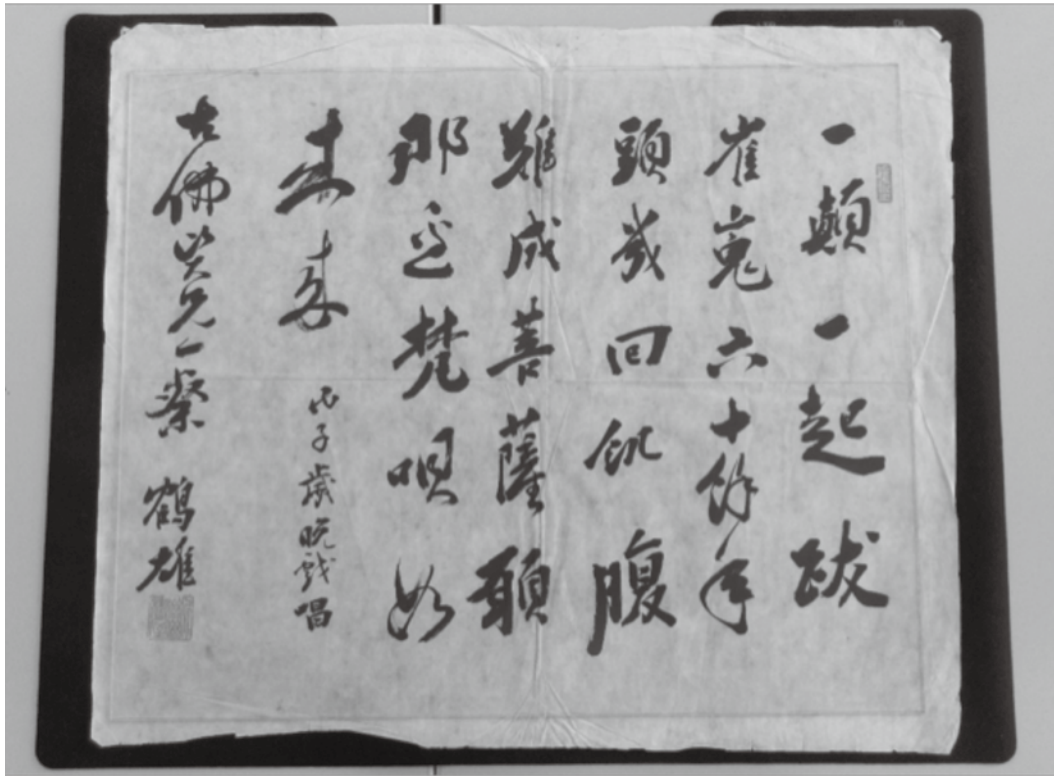 一顛一起跋
崔嵬六十餘年
頭幾回飢腹
難成菩薩願
那邊梵唄如
來來
丙子歲晩戯唱
古佛兄一粲 鶴雄